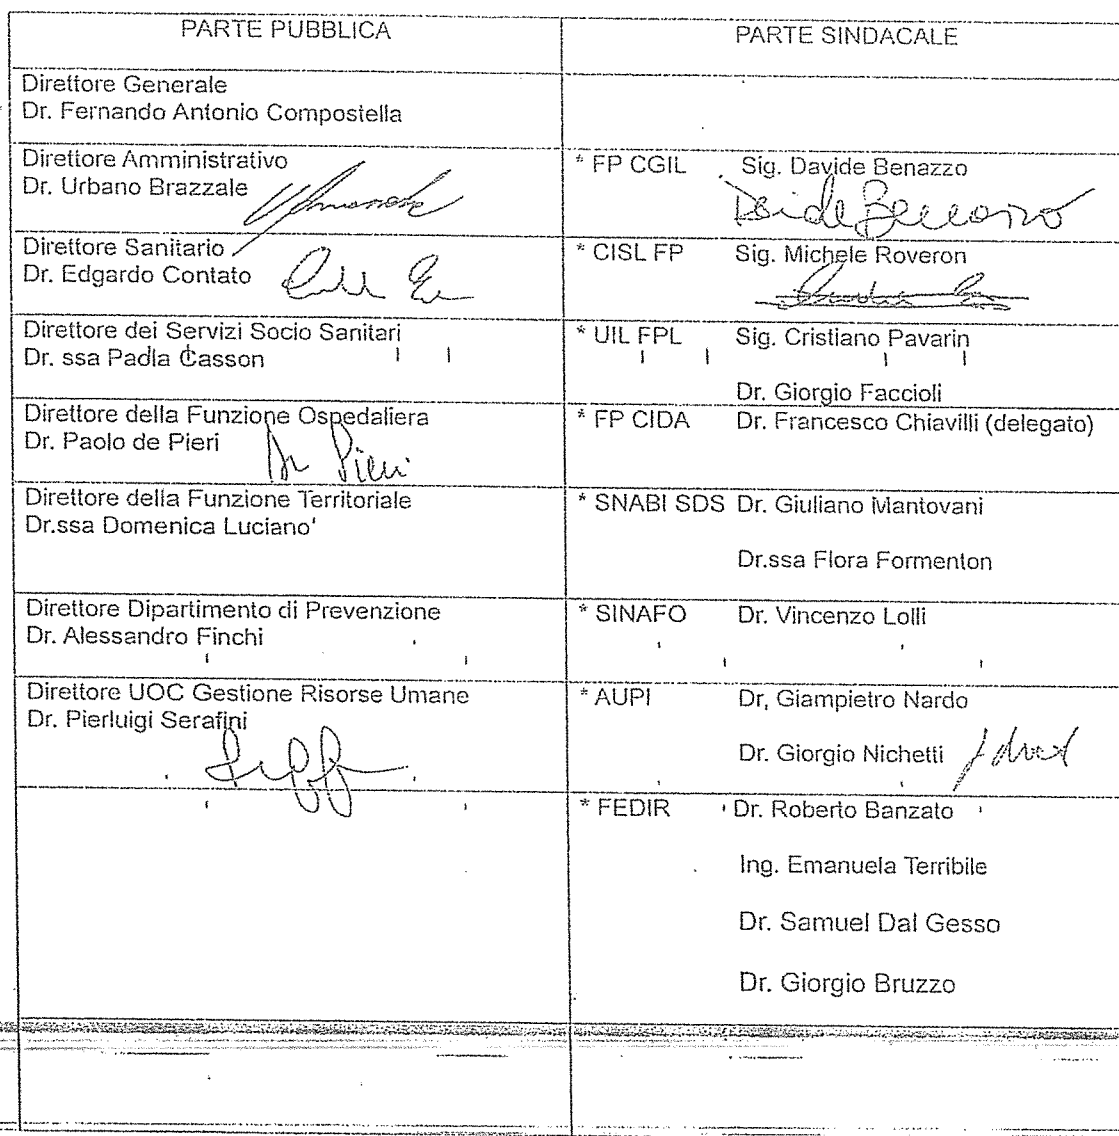 PARTE PUBBLICA
PARTE SINDACALE
Direttore Generale
Dr. Fernando Antonio Compostella
Direttore Amministrativo
Dr. Urbano Brazzale
* FP CGIL Sig. Davide Benazzo
Davide Benazzo
Direttore Sanitario
Dr. Edgardo Contato
* CISL FP Sig. Michele Roveron
Direttore dei Servizi Socio Sanitari
Dr. ssa Paola Casson
* UIL FPL Sig. Cristiano Pavarin
Dr. Giorgio Faccioli
Direttore della Funzione Ospedaliera
Dr. Paolo de Pieri
* FP CIDA Dr. Francesco Chiavilli (delegato)
Direttore della Funzione Territoriale
Dr.ssa Domenica Luciano'
* SNABI SDS Dr. Giuliano Mantovani
Dr.ssa Flora Formenton
Direttore Dipartimento di Prevenzione
Dr. Alessandro Finchi
* SINAFO Dr. Vincenzo Lolli
Direttore UOC Gestione Risorse Umane
Dr. Pierluigi Serafini
* AUPI Dr, Giampietro Nardo
Dr. Giorgio Nichetti
* FEDIR Dr. Roberto Banzato
Ing. Emanuela Terribile
Dr. Samuel Dal Gesso
Dr. Giorgio Bruzzo